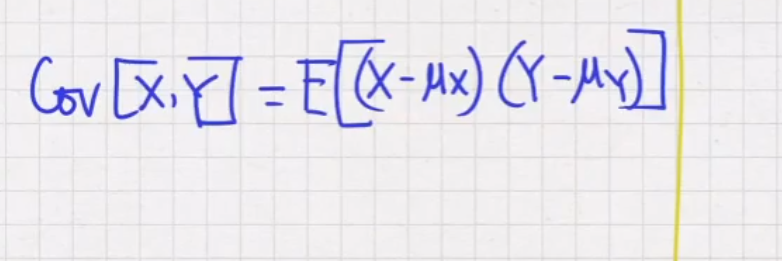 Cov[X,Y] = E[(X-μx)(Y-μY)]